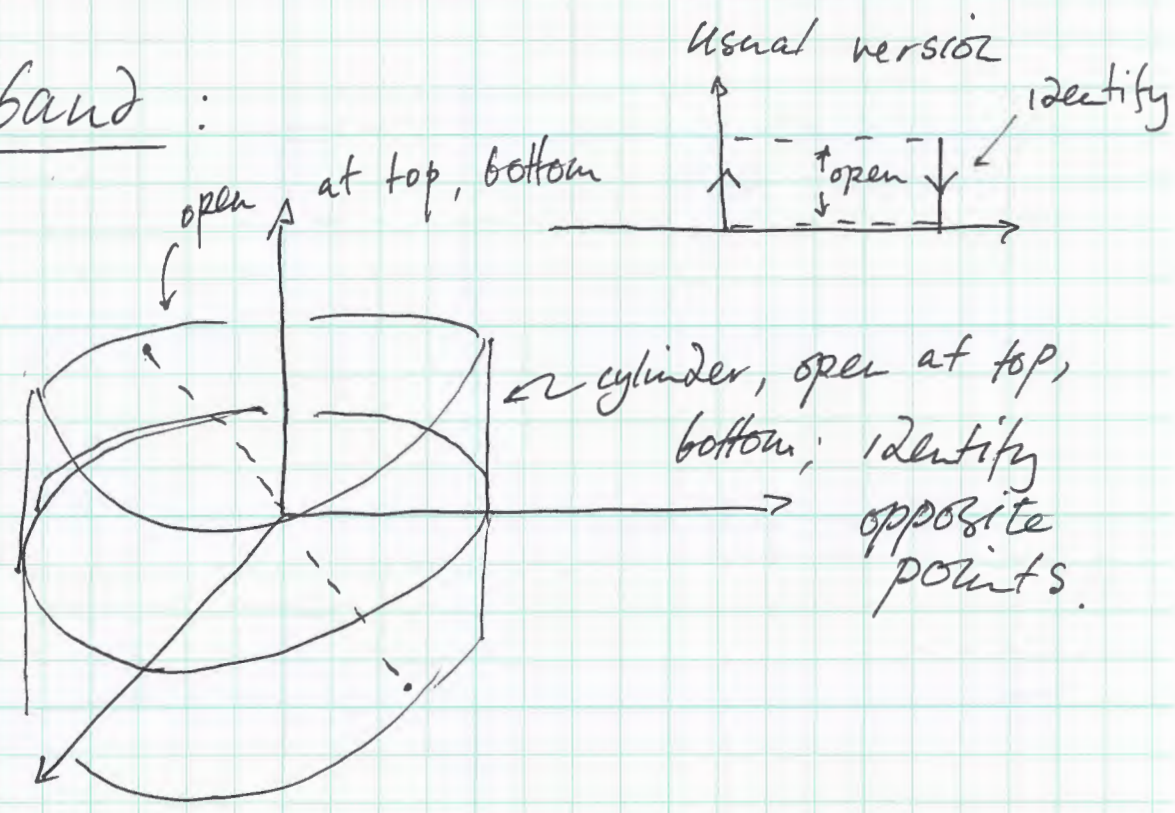 usual version
band :
identify
open at top, bottom
open
cylinder, open at top,
bottom; identify
opposite
points.